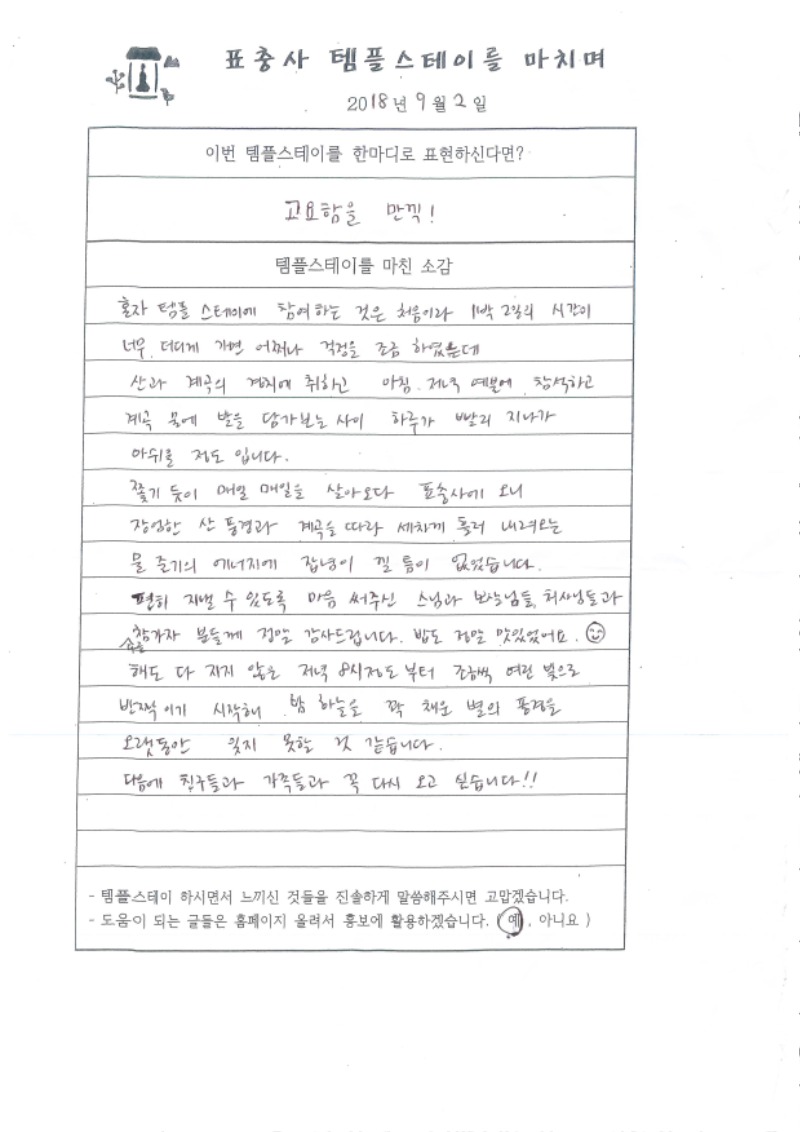 표충사 템플스테이를 마치며
2018년 9월 2일
이번 템플스테이를 한마디로 표현하신다면?
고요함을 만끽!
템플스테이를 마친 소감
혼자 템플 스테이에 참여하는 것은 처음이라 1박 2일의 시간이
너무 더디게 가면 어쩌나 걱정을 조금 하였는데
산과 계곡의 경치에 취하고 아침. 저녁 예불에 참석하고
계곡 물에 발을 담가보는 사이 하루가 빨리 지나가
아쉬울 정도 입니다.
쫓기 듯이 매일 매일을 살아오다 표충사에 오니
장엄한 산 풍경과 계곡을 따라 세차게 흘러 내려오는
물 줄기의 에너지에 잡념이 낄 틈이 없었습니다.
편히 지낼 수 있도록 마음 써주신 스님과 보살님들, 처사님들과
참가자 분들께 정말 감사드립니다. 밥도 정말 맛있었어요.
해도 다 지지 않은 저녁 8시정도부터 조금씩 여린 빛으로
반짝이기 시작해 밤 하늘을 꽉 채운 별의 풍경을
오랫동안 잊지 못할 것 같습니다.
다음에 친구들과 가족들과 꼭 다시 오고 싶습니다!!
- 템플스테이 하시면서 느끼신 것들을 진솔하게 말씀해주시면 고맙겠습니다.
- 도움이 되는 글들은 홈페이지 올려서 홍보에 활용하겠습니다. ( 예 , 아니요 )